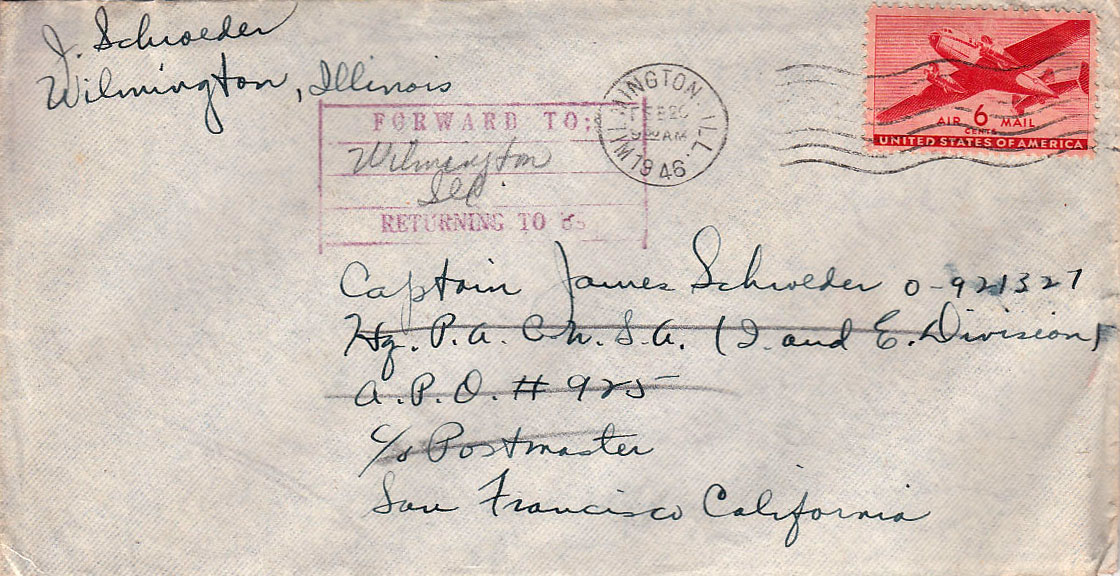 J. Schroeder
Wilmington, Illinois
FORWARD TO:
Wilmington
Ill.
RETURNING TO US
WILMINGTON. ILL.
FEB
AM
1946
AIR 6 MAIL
CENTS
UNITED STATES OF AMERICA
Captain James Schroeder O-921327
Hq. P.A. Ch. S.A. (I. and E. Division)
A.P.O. # 925
c/o Postmaster
San Francisco California